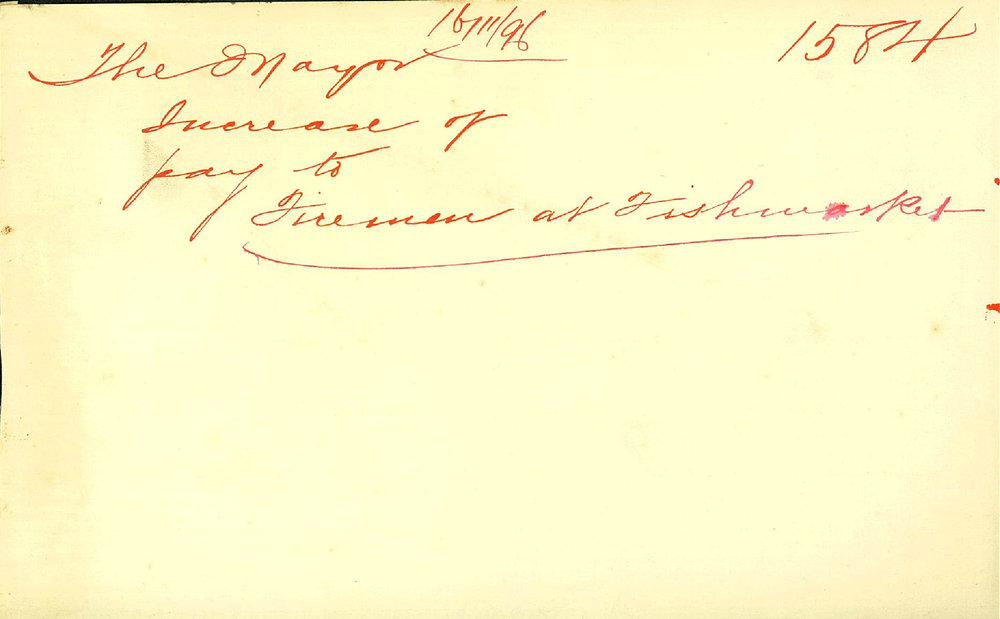 16/11/96
1584
The Mayor
Increase of
pay to
Firemen at Fishmarket